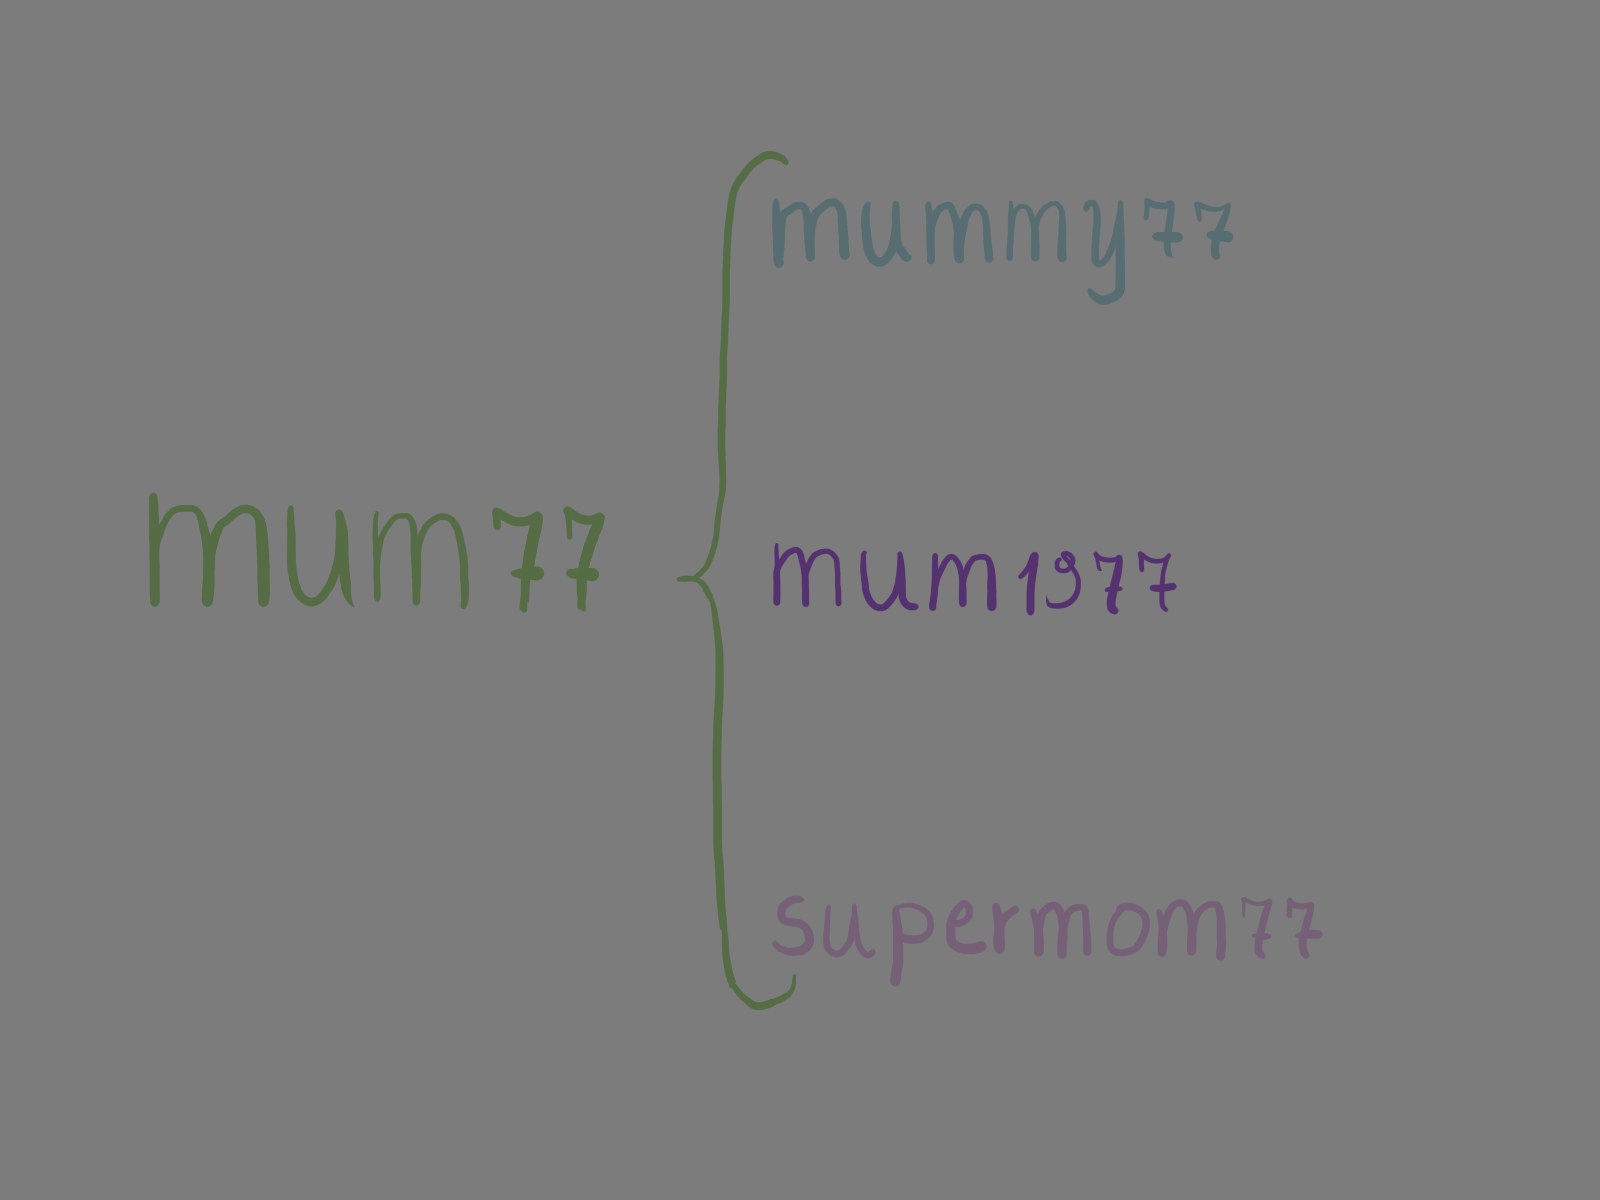 mum77
mummy77
mum1977
supermom77